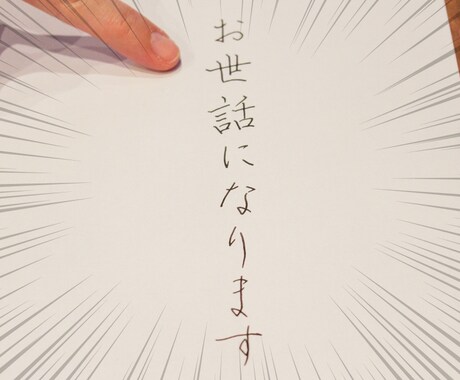 お世話になります